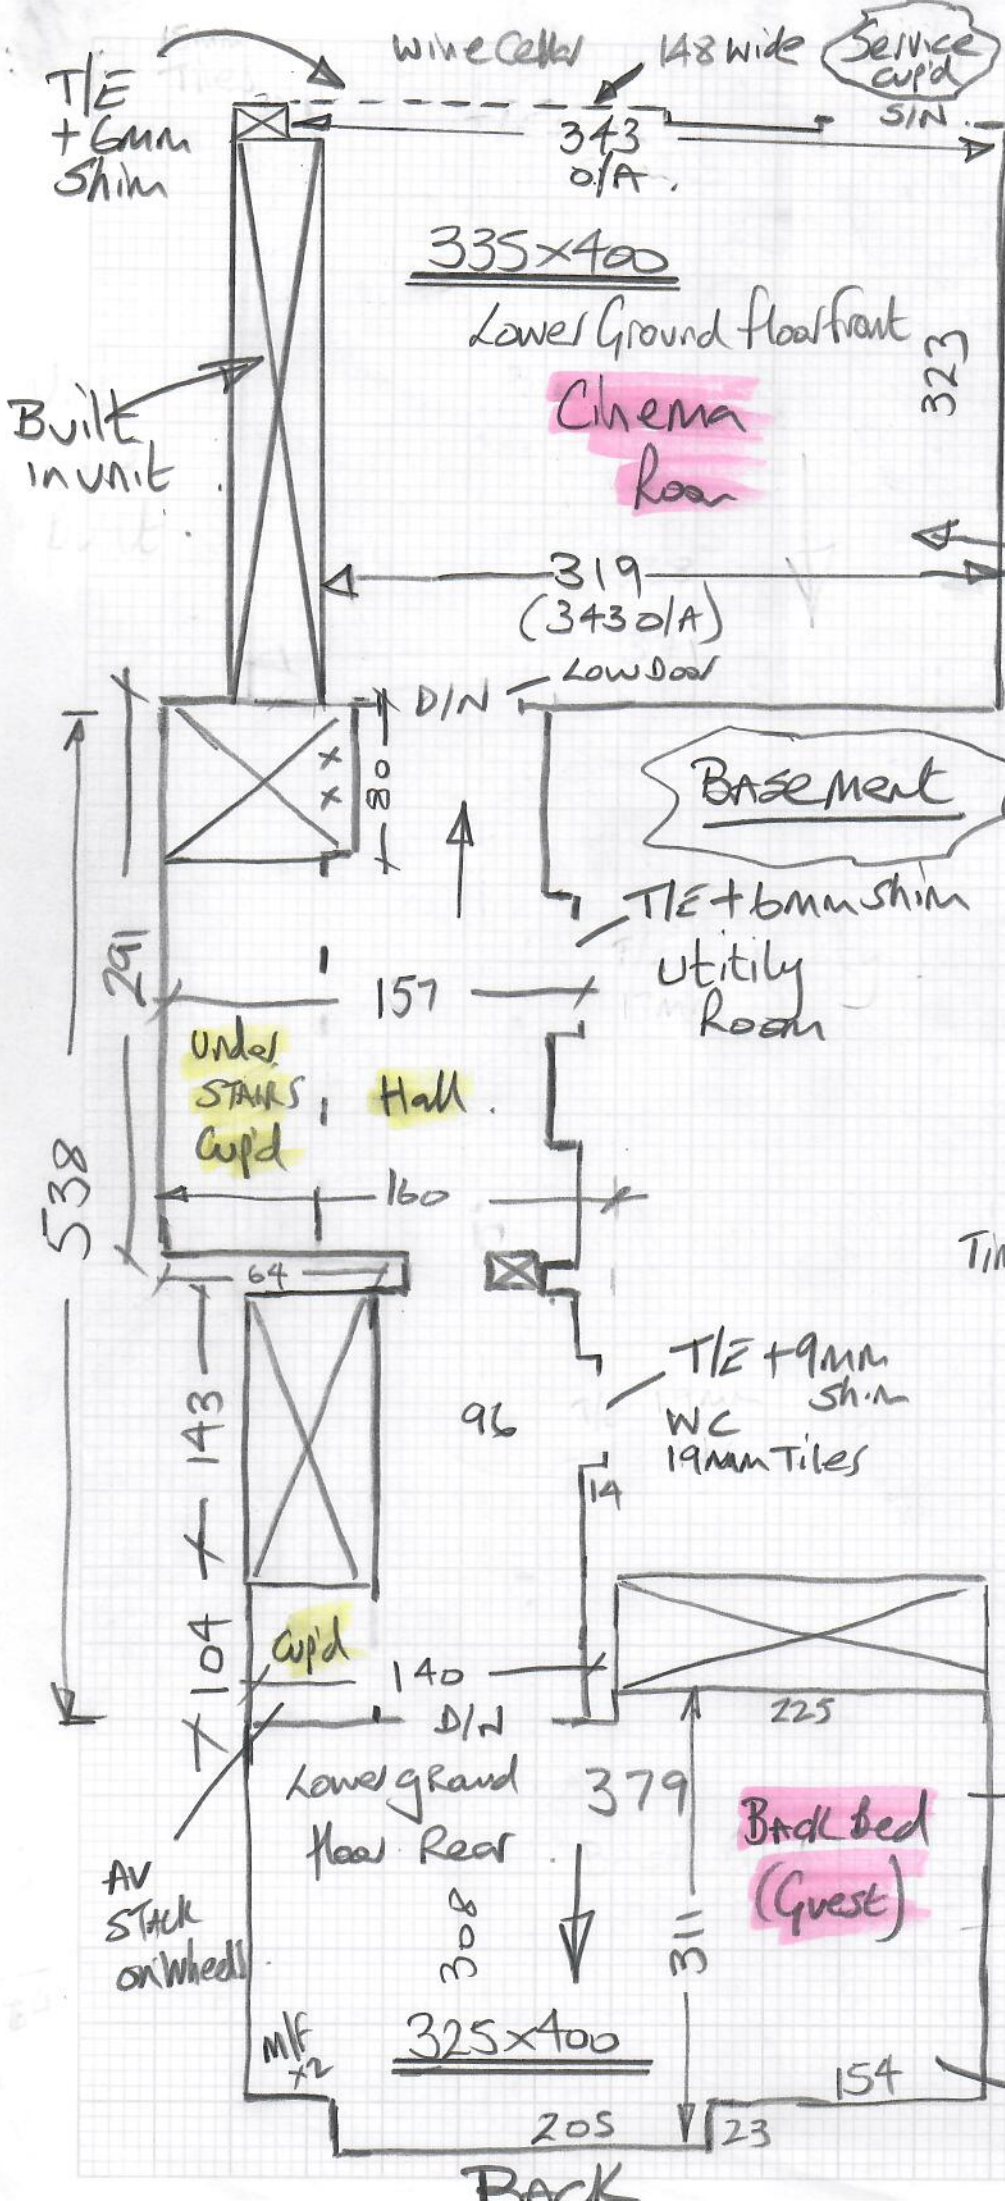 wine Cellar
148 wide
Service
cup'd
T/E
+ 6mm
Shim
S/N
343
O/A.
335x400
Lower Ground floor front
Cinema
Room
323
Built
in unit
319
(343 O/A)
Low Door
D/N
80
x
x
Basement
T/E + 6mm shim
Utitily
Room
291
157
Under
STAIRS
Cup'd
Hall
538
160
64
T/E + 9mm
Shim
WC
19mm Tiles
143
96
14
104
Cup'd
140
D/N
225
Lower ground
floor Rear
379
Back Bed
(Guest)
AV
STACK
on wheels
308
311
M/F
x2
325x400
154
205
23
BACK